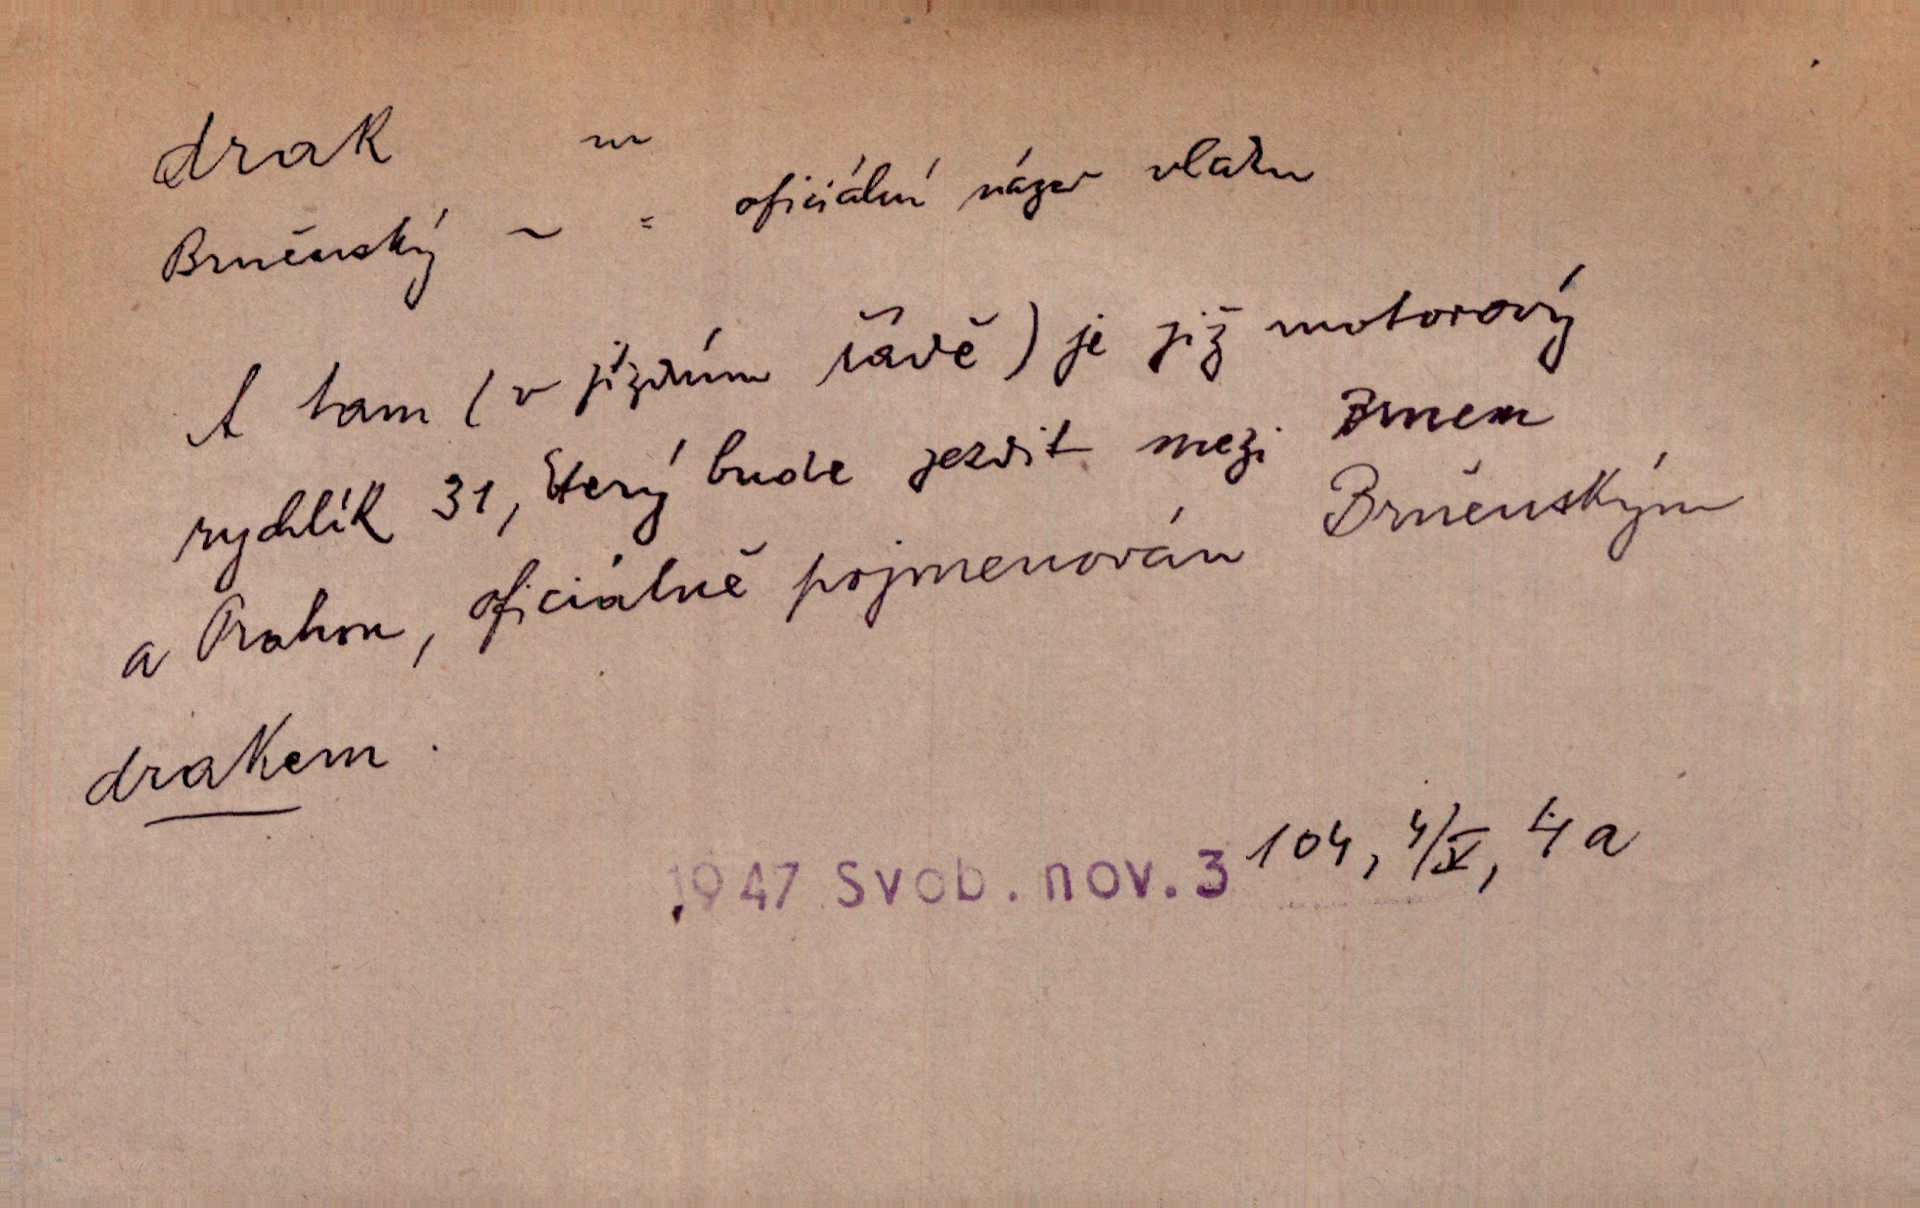 drak m
Brněnský ~ = oficiální název vlaku
A tam (v jízdním řádě) je již motorový
rychlík 31, který bude jezdit mezi Brnem
a Prahou, oficiálně pojmenován Brněnským
drakem.
1947 Svob. nov. 3 104, 4/V, 4 a